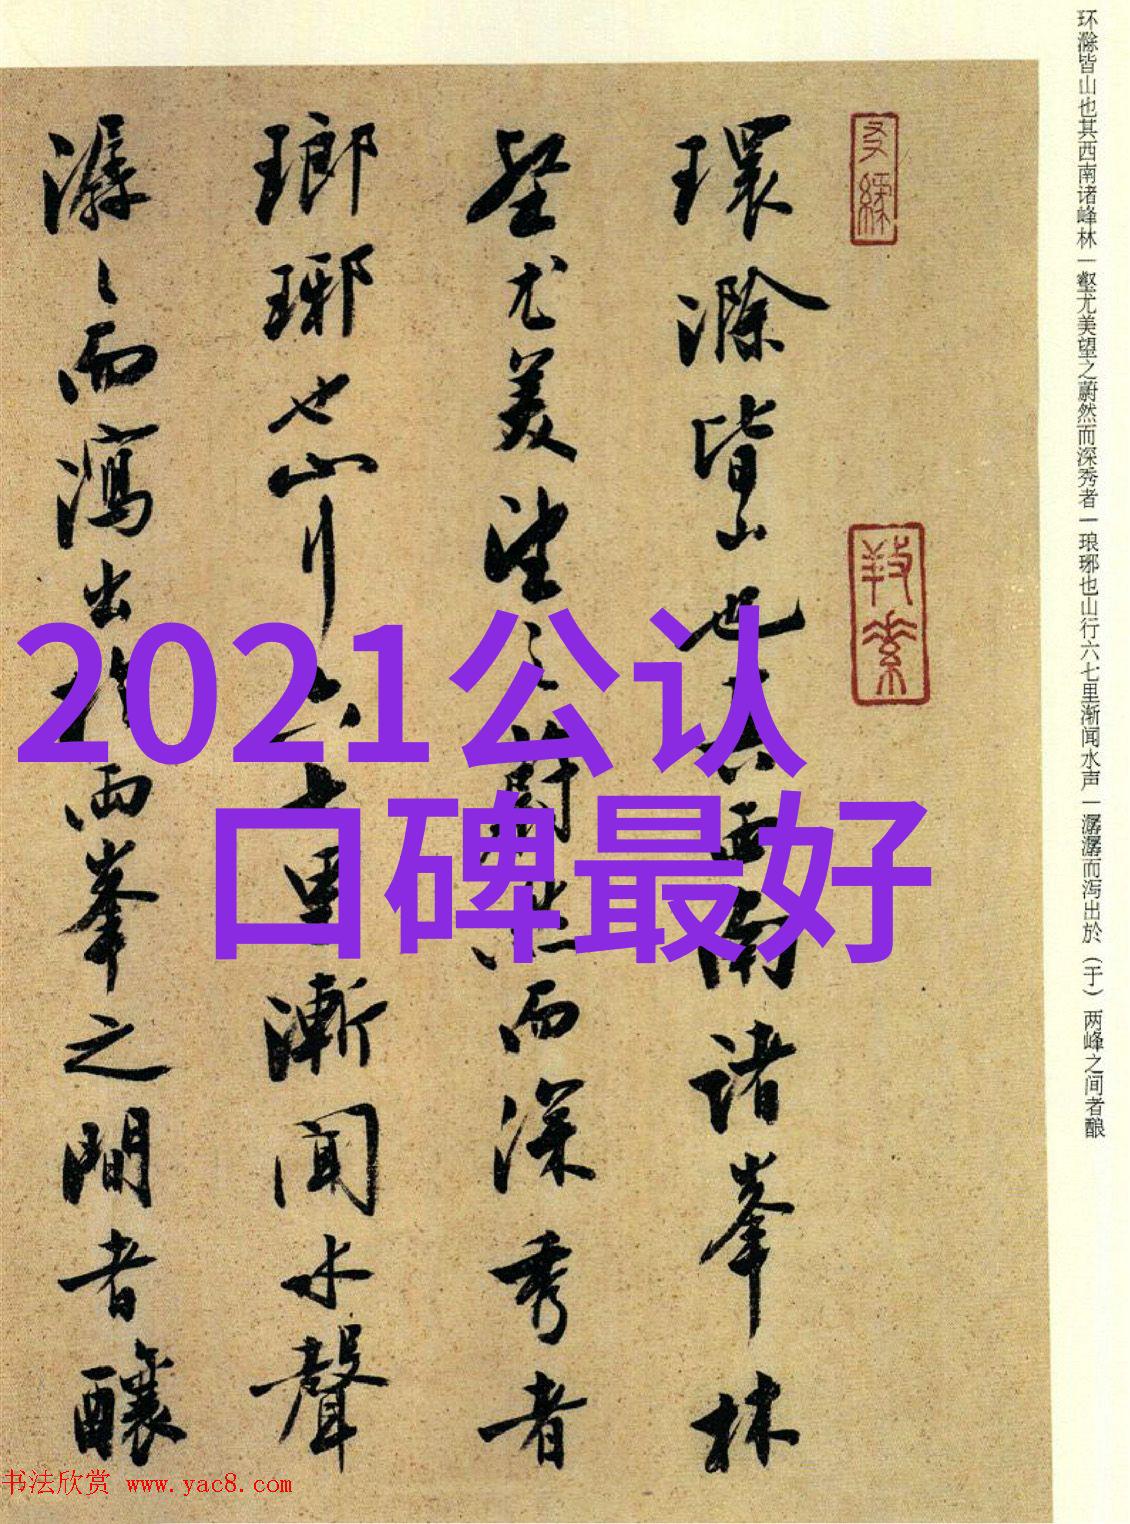 环滁皆山也其西南诸峰林一壑尤美望之蔚然而深秀者一琅琊也山行六七里渐闻水声一潺潺而泻出於（于）两峰之间者酿
環滁皆山也其西南諸峯林
壑尤美望之蔚然而深秀者
瑯琊也山行六七里漸聞水聲
潺〻而瀉出於兩峯之間者釀
2021公认
口碑最好
书法欣赏 www.yac8.com